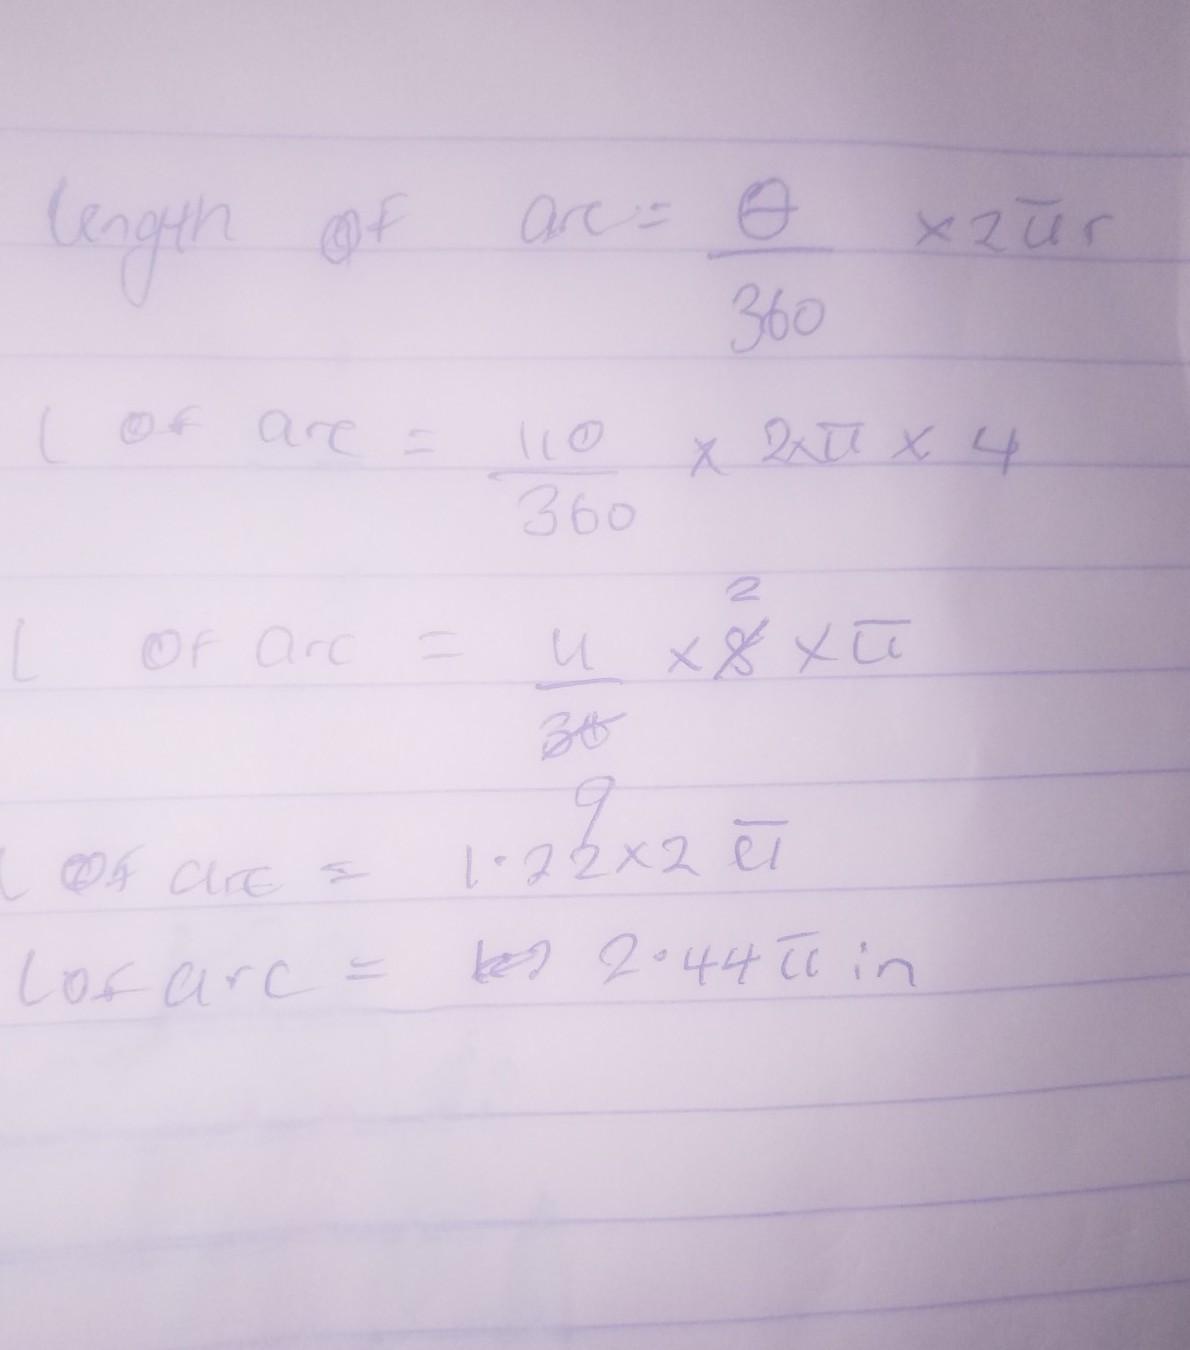 length of arc = θ/360 × 2πr
l of arc = 110/360 × 2×π × 4
l of arc = 11/36 9 × 8 2 × π
l of arc = 1.22×2π
l of arc = 2.44π in